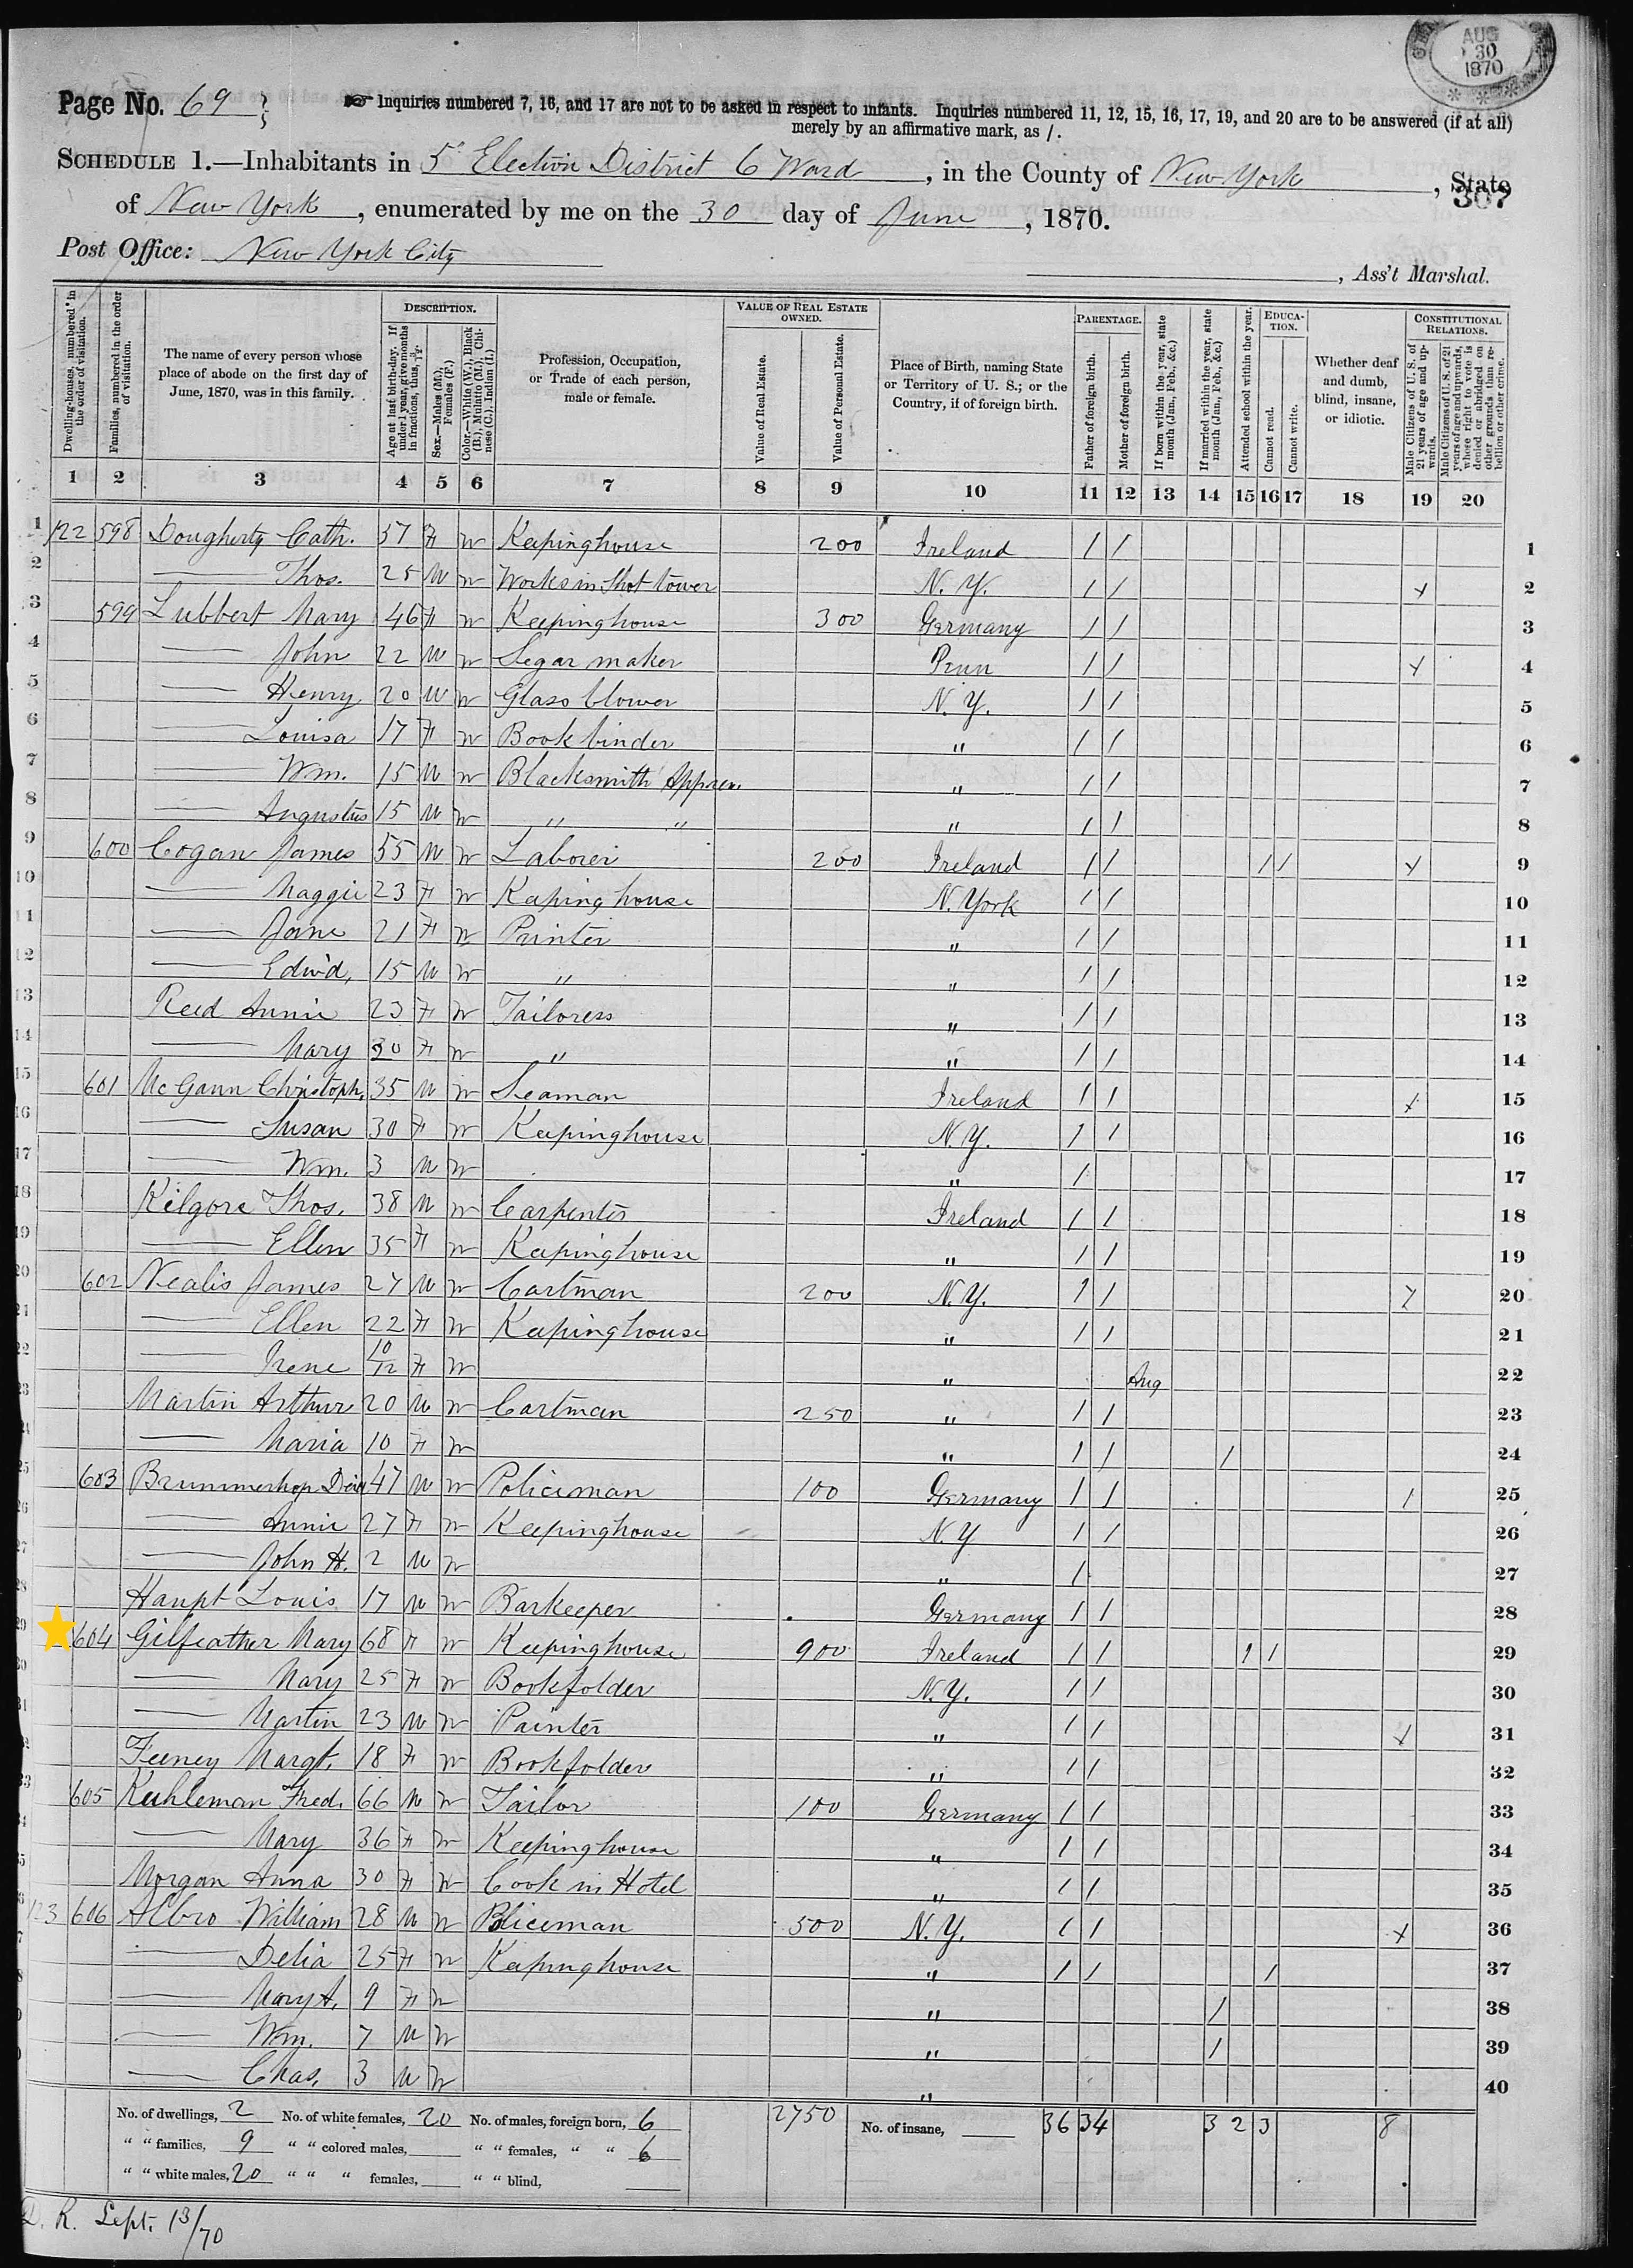 AUG
30
1870
Page No. 69
Inquiries numbered 7, 16, and 17 are not to be asked in respect to infants. Inquiries numbered 11, 12, 15, 16, 17, 19, and 20 are to be answered (if at all)
merely by an affirmative mark, as /.
SCHEDULE 1.—Inhabitants in 5 Election District 6 Ward, in the County of New York, State
307
of New York, enumerated by me on the 30 day of June, 1870.
Post Office: New York City
, Ass't Marshal.
Dwelling-houses, numbered in the order of visitation.
Families, numbered in the order of visitation.
The name of every person whose place of abode on the first day of June, 1870, was in this family.
DESCRIPTION.
Age at last birth-day. If under 1 year, give months in fractions, thus, 3/12.
Sex.—Males (M.), Females (F.)
Color.—White (W.), Black (B.), Mulatto (M.), Chinese (C.), Indian (I.)
Profession, Occupation, or Trade of each person, male or female.
VALUE OF REAL ESTATE OWNED.
Value of Real Estate.
Value of Personal Estate.
Place of Birth, naming State or Territory of U. S.; or the Country, if of foreign birth.
PARENTAGE.
Father of foreign birth.
Mother of foreign birth.
If born within the year, state month (Jan., Feb., &c.)
If married within the year, state month (Jan., Feb., &c.)
Attended school within the year.
EDUCATION.
Cannot read.
Cannot write.
Whether deaf and dumb, blind, insane, or idiotic.
CONSTITUTIONAL RELATIONS.
Male Citizens of U. S. of 21 years of age and upwards.
Male Citizens of U. S. of 21 years of age and upwards, whose right to vote is denied or abridged on other grounds than rebellion or other crime.
1 2 3 4 5 6 7 8 9 10 11 12 13 14 15 16 17 18 19 20
1 122 598 Dougherty Cath. 57 F W Keepinghouse 200 Ireland / / 1
2 — Thos. 25 M W Works in Shot tower N.Y. / / X 2
3 599 Lubbert Mary 46 F W Keepinghouse 300 Germany / / 3
4 — John 22 M W Segar maker Penn / / X 4
5 — Henry 20 M W Glass blower N.Y. / / 5
6 — Louisa 17 F W Book binder " / / 6
7 — Wm. 15 M W Blacksmith Appren. " / / 7
8 — Augustus 15 M W " " " / / 8
9 600 Cogan James 55 M W Laborer 200 Ireland / / / / X 9
10 — Maggie 23 F W Keeping house N. York / / 10
11 — Jane 21 F W Painter " / / 11
12 — Edw'd, 15 M W " " / / 12
13 Reed Annie 23 F W Tailoress " / / 13
14 — Mary 30 F W " " / / 14
15 601 McGann Christoph. 35 M W Seaman Ireland / / X 15
16 — Susan 30 F W Keepinghouse N.Y. / / 16
17 — Wm. 3 M W " / 17
18 Kilgore Thos. 38 M W Carpenter Ireland / / 18
19 — Ellen 35 F W Keepinghouse " / / 19
20 602 Nealis James 27 M W Cartman 200 N.Y. / / X 20
21 — Ellen 22 F W Keepinghouse " / / 21
22 — Irene 10/12 F W " Aug 22
23 Martin Arthur 20 M W Cartman 250 " / / 23
24 — Maria 10 F W " / / / 24
25 603 Brummershop 47 M W Policeman 100 Germany / / / 25
26 — Annie 27 F W Keepinghouse N.Y / / 26
27 — John H. 2 M W " / 27
28 Haupt Louis 17 M W Barkeeper Germany / / 28
29 604 Gilfeather Mary 68 F W Keepinghouse 900 Ireland / / / / 29
30 — Mary 25 F W Bookfolder N.Y. / / 30
31 — Martin 23 M W Painter " / / X 31
32 Feeney Margt. 18 F W Bookfolder " / / 32
33 605 Kuhleman Fred. 66 M W Tailor 100 Germany / / 33
34 — Mary 36 F W Keepinghouse " / / 34
35 Morgan Anna 30 F W Cook in Hotel " / / 35
123 606 Albro William 28 M W Policeman 500 N.Y. / / X 36
— Delia 25 F W Keepinghouse " / / / 37
— Mary A. 9 F W " / 38
— Wm. 7 M W " / 39
— Chas. 3 M W " 40
No. of dwellings, 2 No. of white females, 20 No. of males, foreign born, 6 2750 No. of insane, 36 34 3 2 3 8
" " families, 9 " " colored males, " " females, " " 6
" " white males, 20 " " " females, " " blind,
D. R. Sept. 13/70